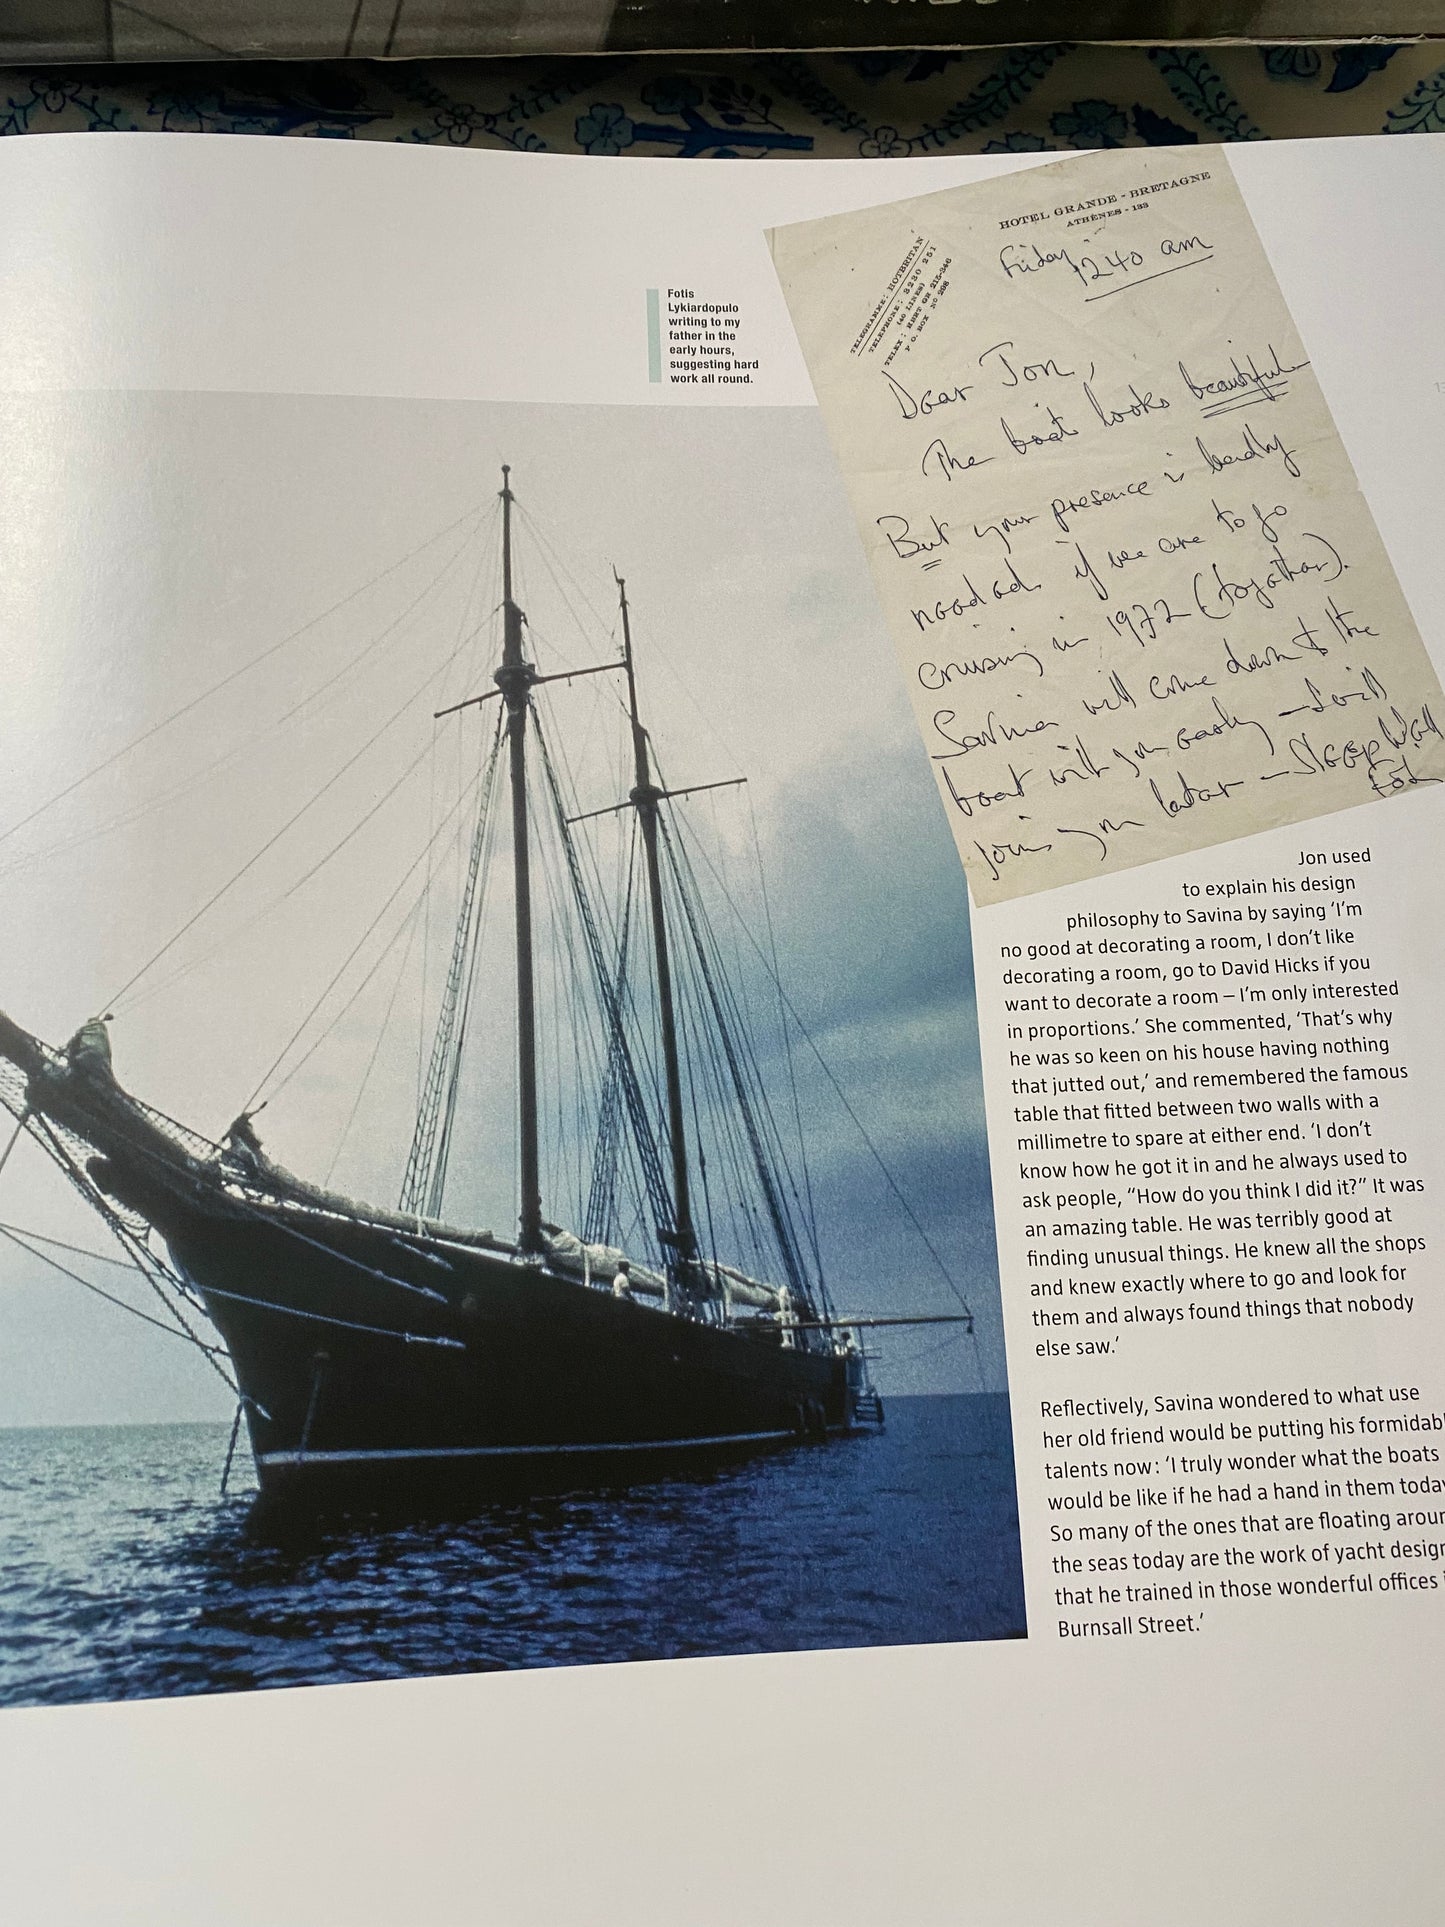 Fotis
Lykiardopulo
writing to my
father in the
early hours,
suggesting hard
work all round.
HOTEL GRANDE - BRETAGNE
ATHÈNES - 133
TELEGRAMME: HOTBRITAN
TELEPHONE: 3230 251
(40 LINES)
P.O. BOX Nº 298
Friday 1240 am
Dear Jon,
The boat looks beautiful
But your presence is badly
needed if we are to go
cruising in 1972 (together).
Savina will come down to the
boat with you early – I will
join you later – Sleep Well
Jon used
to explain his design
philosophy to Savina by saying ‘I’m
no good at decorating a room, I don’t like
decorating a room, go to David Hicks if you
want to decorate a room – I’m only interested
in proportions.’ She commented, ‘That’s why
he was so keen on his house having nothing
that jutted out,’ and remembered the famous
table that fitted between two walls with a
millimetre to spare at either end. ‘I don’t
know how he got it in and he always used to
ask people, “How do you think I did it?” It was
an amazing table. He was terribly good at
finding unusual things. He knew all the shops
and knew exactly where to go and look for
them and always found things that nobody
else saw.’
Reflectively, Savina wondered to what use
her old friend would be putting his formidabl
talents now: ‘I truly wonder what the boats
would be like if he had a hand in them today
So many of the ones that are floating aroun
the seas today are the work of yacht design
that he trained in those wonderful offices i
Burnsall Street.’